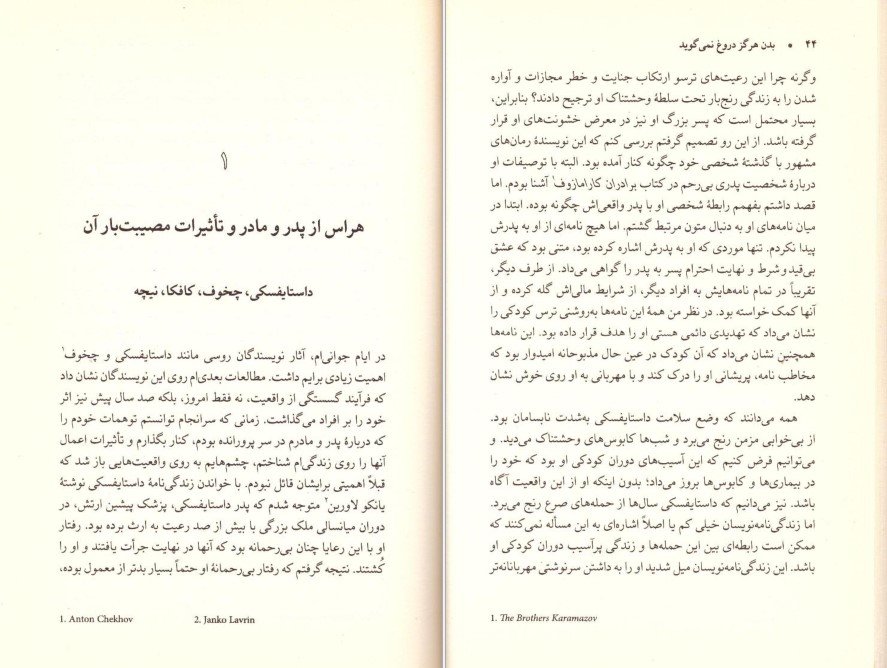 ۱
هراس از پدر و مادر و تأثیرات مصیبت‌بار آن
داستایفسکی، چخوف، کافکا، نیچه
در ایام جوانی‌ام، آثار نویسندگان روسی مانند داستایفسکی و چخوف۱
اهمیت زیادی برایم داشت. مطالعات بعدی‌ام روی این نویسندگان نشان داد
که فرآیند گسستگی از واقعیت، نه فقط امروز، بلکه صد سال پیش نیز اثر
خود را بر افراد می‌گذاشت. زمانی که سرانجام توانستم توهمات خودم را
که دربارهٔ پدر و مادرم در سر پرورانده بودم، کنار بگذارم و تأثیرات اعمال
آنها را روی زندگی‌ام شناختم، چشم‌هایم به روی واقعیت‌هایی باز شد که
قبلاً اهمیتی برایشان قائل نبودم. با خواندن زندگی‌نامهٔ داستایفسکی نوشتهٔ
یانکو لاورین۲ متوجه شدم که پدر داستایفسکی، پزشک پیشین ارتش، در
دوران میانسالی ملک بزرگی با بیش از صد رعیت به ارث برده بود. رفتار
او با این رعایا چنان بی‌رحمانه بود که آنها در نهایت جرأت یافتند و او را
کُشتند. نتیجه گرفتم که رفتار بی‌رحمانهٔ او حتماً بسیار بدتر از معمول بوده،
1. Anton Chekhov 2. Janko Lavrin
۴۴ • بدن هرگز دروغ نمی‌گوید
وگرنه چرا این رعیت‌های ترسو ارتکاب جنایت و خطر مجازات و آواره
شدن را به زندگی رنج‌بار تحت سلطهٔ وحشتناک او ترجیح دادند؟ بنابراین،
بسیار محتمل است که پسر بزرگ او نیز در معرض خشونت‌های او قرار
گرفته باشد. از این رو تصمیم گرفتم بررسی کنم که این نویسندهٔ رمان‌های
مشهور با گذشتهٔ شخصی خود چگونه کنار آمده بود. البته با توصیفات او
دربارهٔ شخصیت پدری بی‌رحم در کتاب برادران کارامازوف۱ آشنا بودم. اما
قصد داشتم بفهمم رابطهٔ شخصی او با پدر واقعی‌اش چگونه بوده. ابتدا در
میان نامه‌های او به دنبال متون مرتبط گشتم. اما هیچ نامه‌ای از او به پدرش
پیدا نکردم. تنها موردی که او به پدرش اشاره کرده بود، متنی بود که عشق
بی‌قیدوشرط و نهایت احترام پسر به پدر را گواهی می‌داد. از طرف دیگر،
تقریباً در تمام نامه‌هایش به افراد دیگر، از شرایط مالی‌اش گله کرده و از
آنها کمک خواسته بود. در نظر من همهٔ این نامه‌ها به‌روشنی ترس کودکی را
نشان می‌داد که تهدیدی دائمی هستی او را هدف قرار داده بود. این نامه‌ها
همچنین نشان می‌داد که آن کودک در عین حال مذبوحانه امیدوار بود که
مخاطب نامه، پریشانی او را درک کند و با مهربانی به او روی خوش نشان
دهد.
همه می‌دانند که وضع سلامت داستایفسکی به‌شدت نابسامان بود.
از بی‌خوابی مزمن رنج می‌برد و شب‌ها کابوس‌های وحشتناک می‌دید. و
می‌توانیم فرض کنیم که این آسیب‌های دوران کودکی او بود که خود را
در بیماری‌ها و کابوس‌ها بروز می‌داد؛ بدون اینکه او از این واقعیت آگاه
باشد. نیز می‌دانیم که داستایفسکی سال‌ها از حمله‌های صرع رنج می‌برد.
اما زندگی‌نامه‌نویسان خیلی کم یا اصلاً اشاره‌ای به این مسأله نمی‌کنند که
ممکن است رابطه‌ای بین این حمله‌ها و زندگی پرآسیب دوران کودکی او
باشد. این زندگی‌نامه‌نویسان میل شدید او را به داشتن سرنوشتی مهربانانه‌تر
1. The Brothers Karamazov